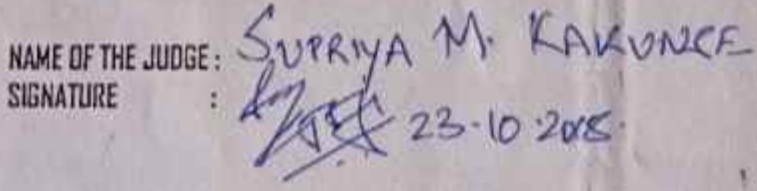 NAME OF THE JUDGE : SUPRIYA M. KAKUNJE
SIGNATURE : 23.10.2018.